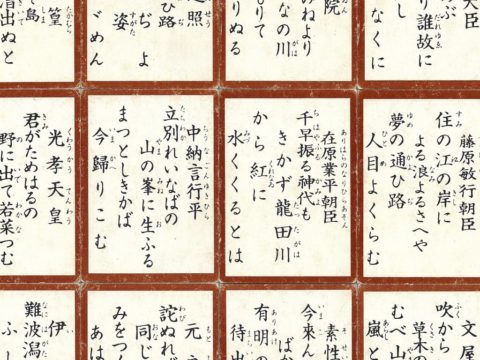 大臣
ぶ
り誰故に
し
なくに
院
みねより
なの川
もりて
りぬる
照
ひ路
ぢよ
姿
ゞめん
篁
島
漕出ぬと
藤原敏行朝臣
住の江の岸に
よる波よるさへや
夢の通ひ路
人目よくらむ
在原業平朝臣
千早振る神代も
きかず龍田川
から紅に
水くくるとは
中納言行平
立別れいなばの
山の峯に生ふる
まつとしきかば
今歸りこむ
光孝天皇
君がためはるの
野に出て若菜つむ
文屋
吹から
草木の
むべ山
嵐
素性
今來ん
ばか
有明の
待出
元
詫ぬれ
同じ
みをつ
あは
伊
難波潟
ふし